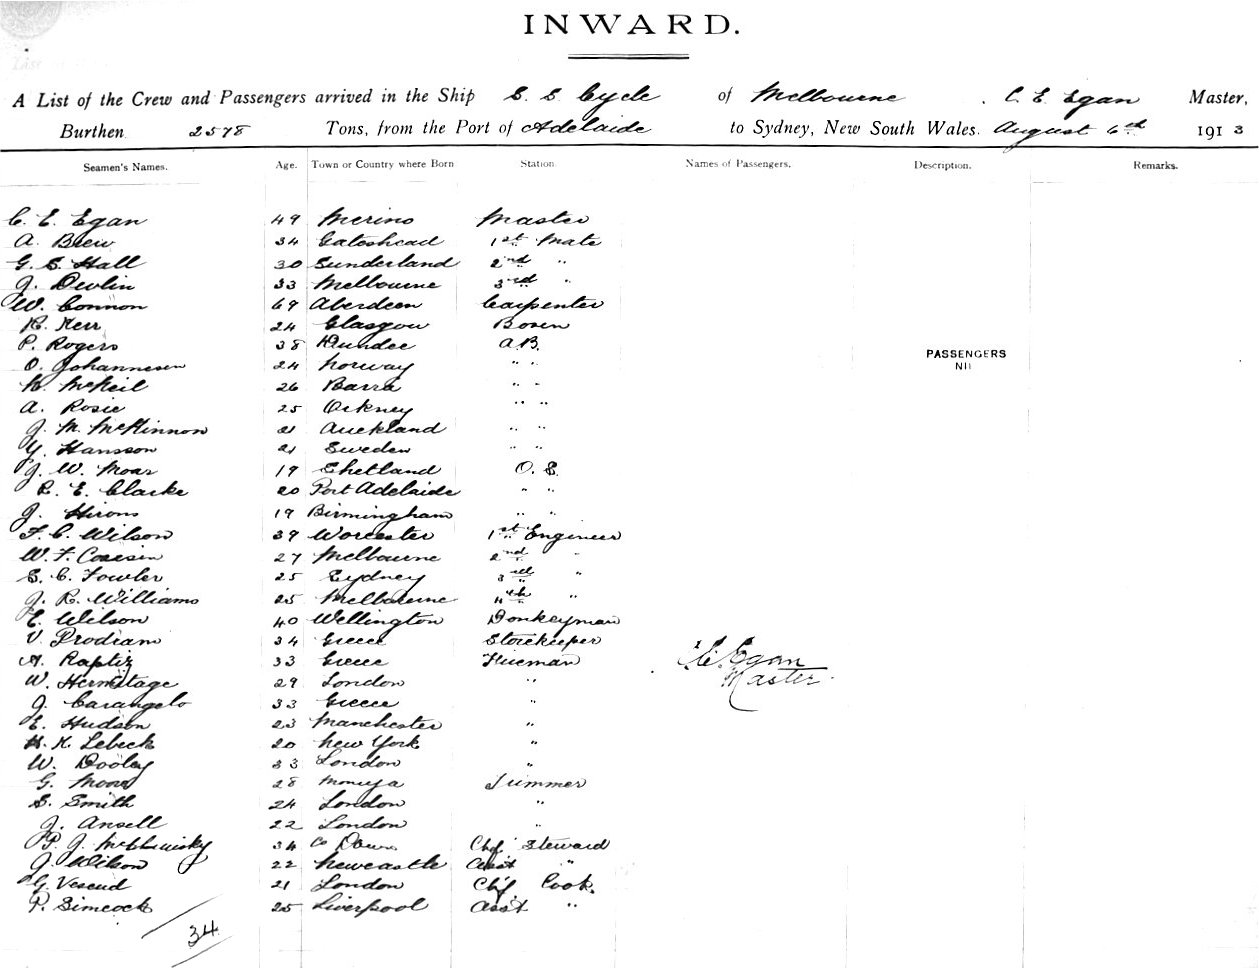 INWARD.
A List of the Crew and Passengers arrived in the Ship S. S. Cycle of Melbourne. C. E. Egan Master,
Burthen 2578 Tons, from the Port of Adelaide to Sydney, New South Wales. August 6th 1913
Seamen's Names. Age. Town or Country where Born Station Names of Passengers. Description. Remarks.
C. E. Egan 49 Merino Master
A. Brew 34 Gateshead 1st Mate
G. S. Hall 30 Sunderland 2nd "
J. Devlin 33 Melbourne 3rd "
W. Connon 69 Aberdeen Carpenter
R. Kerr 24 Glasgow Bosen
P. Rogers 38 Dundee A.B.
O. Johannesen 24 Norway " "
N. McNeil 26 Barra " "
A. Rosie 25 Orkney " "
J. M. McKinnon 21 Auckland " "
Y. Hansson 21 Sweden " "
J. W. Moar 19 Shetland O. S.
R. E. Clarke 20 Port Adelaide " "
J. Hirons 19 Birmingham " "
F. C. Wilson 39 Worcester 1st Engineer
W. F. 27 Melbourne 2nd "
S. C. Fowler 25 Sydney 3rd "
J. R. Williams 25 Melbourne 4th "
E. Wilson 40 Wellington Donkeyman
V. Prodram 34 Greece Storekeeper
A. Raptis 33 Greece Fireman
W. Hermitage 29 London "
J. Carangelo 33 Greece "
E. Hudson 23 Manchester "
H. K. Lebeck 20 New York "
W. Dooley 33 London "
G. Moore 28 Moruya Trimmer
S. Smith 24 London "
J. Ansell 22 London "
P. J. 34 Co Down Chf Steward
J. Wilson 22 Newcastle Asst "
G. 21 London Chf Cook.
P. Simcock 25 Liverpool Asst "
34
PASSENGERS
NIL
C. E. Egan
Master